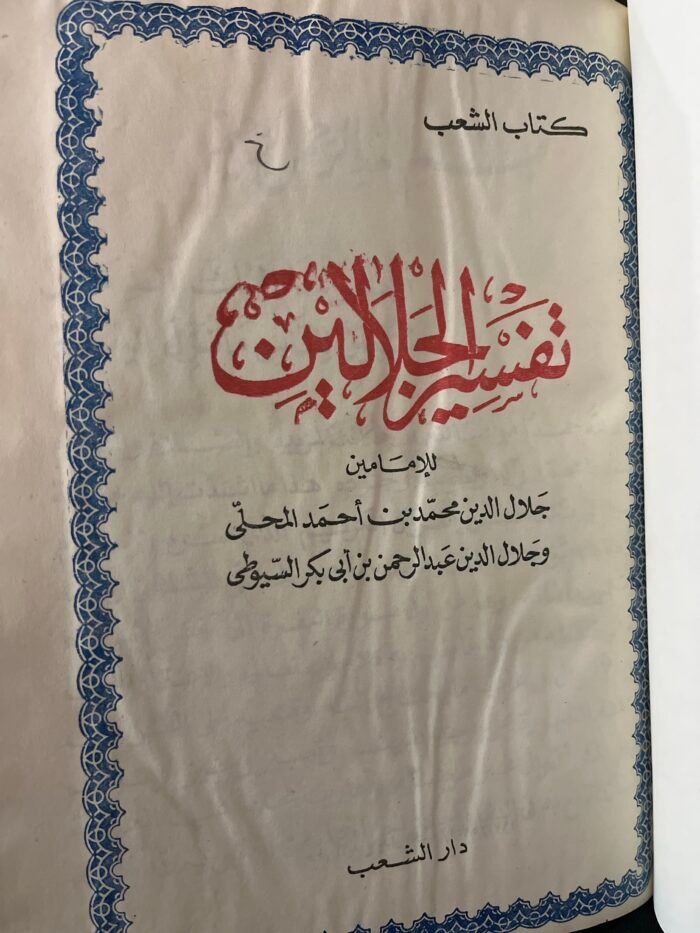 كتاب الشعب
تفسير الجلالين
للإمامين
جلال الدين محمد بن أحمد المحلّي
وجلال الدين عبد الرحمن بن أبي بكر السّيوطي
دار الشعب